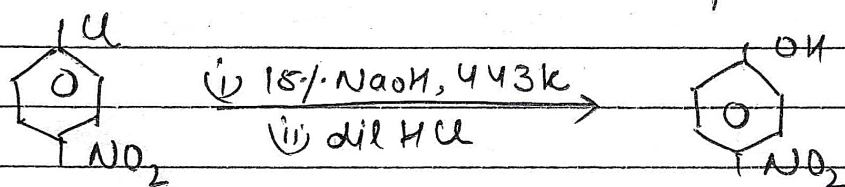 Cl OH
(i) 15% NaOH, 443k
(ii) dil HCl
NO2 NO2